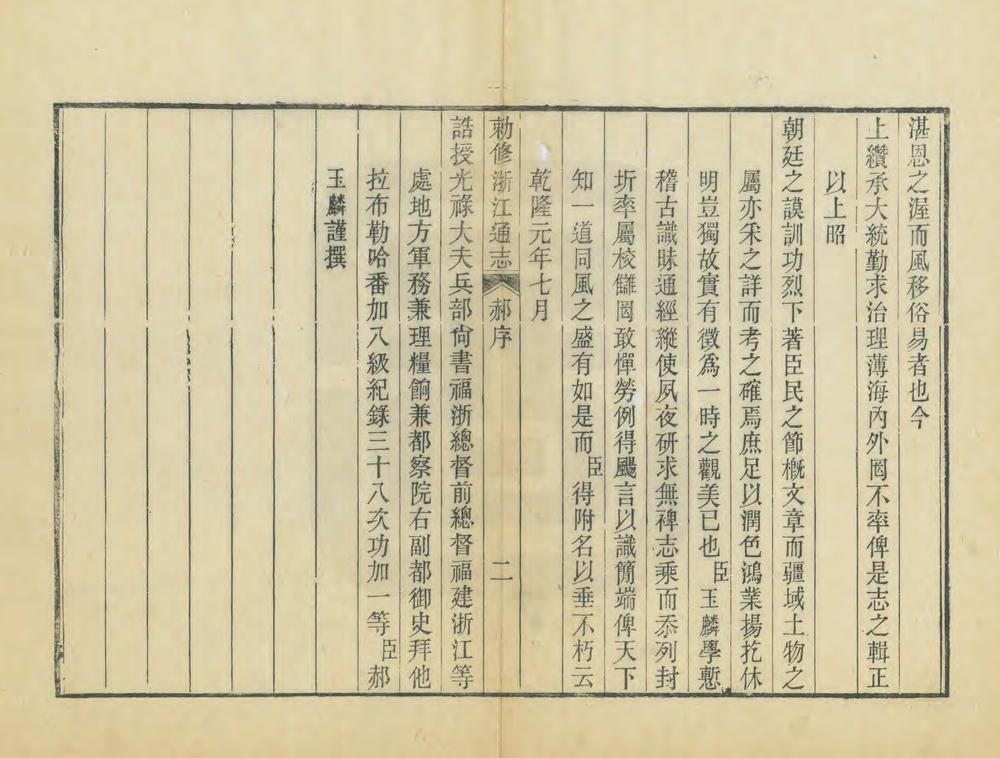 湛恩之渥而風移俗易者也今
上纘承大統勤求治理薄海內外罔不率俾是志之輯正
以上昭
朝廷之謨訓功烈下著臣民之節槪文章而疆域土物之
屬亦采之詳而考之確焉庶足以潤色鴻業揚扢休
明豈獨故實有徵爲一時之觀美已也臣玉麟學慙
稽古識昧通經縱使夙夜硏求無裨志乘而忝列封
圻率屬校讎罔敢憚勞例得颺言以識簡端俾天下
知一道同風之盛有如是而臣得附名以垂不朽云
乾隆元年七月
勅修浙江通志 郝序 二
誥授光祿大夫兵部尙書福浙總督前總督福建浙江等
處地方軍務兼理糧餉兼都察院右副都御史拜他
拉布勒哈番加八級紀錄三十八次功加一等臣郝
玉麟謹撰